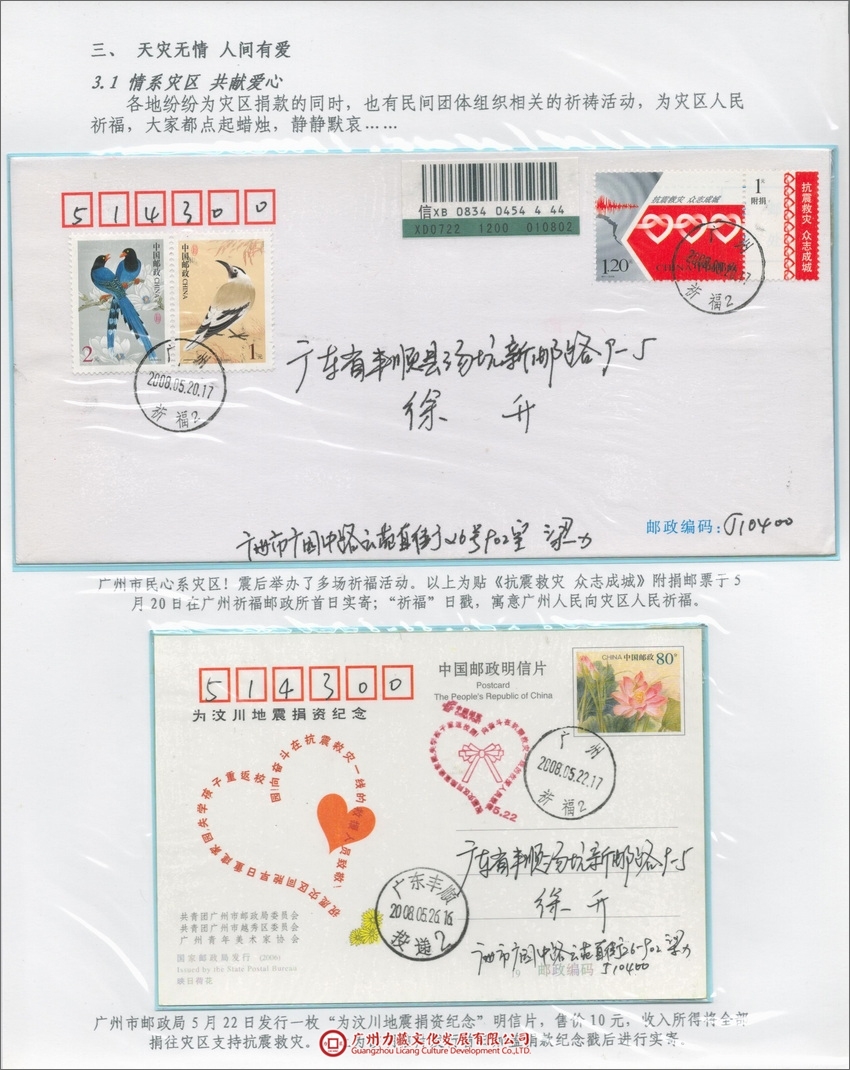 三、 天灾无情 人间有爱
3.1 情系灾区 共献爱心
各地纷纷为灾区捐款的同时，也有民间团体组织相关的祈祷活动，为灾区人民
祈福，大家都点起蜡烛，静静默哀……
514300
信XB 0834 0454 4 44
XD0722 1200 010802
抗震救灾 众志成城
1元
附捐
抗震救灾 众志成城
1.20元
CHINA 中国邮政
广州
17
祈福2
中国邮政 CHINA
2元
中国邮政 CHINA
1元
广州
2008.05.20.17
祈福2
广东省丰顺县汤坑新邮路9-5
徐 升
广州市广园中路云苑直街26号902室 梁力
邮政编码：510400
广州市民心系灾区！震后举办了多场祈福活动。以上为贴《抗震救灾 众志成城》附捐邮票于5
月20日在广州祈福邮政所首日实寄；“祈福”日戳，寓意广州人民向灾区人民祈福。
514300
为汶川地震捐资纪念
中国邮政明信片
Postcard
The People's Republic of China
CHINA 中国邮政 80分
祝愿灾区同胞早日重建家园，失学孩子重返校园！向奋斗在抗震救灾一线的救援人员致敬！
5.22
广州
2008.05.22.17
祈福2
广东省丰顺汤坑新邮路9-5
徐 升
广东丰顺
2008.05.26.16
投递2
共青团广州市邮政局委员会
共青团广州市越秀区委员会
广州青年美术家协会
国家邮政局发行 (2006)
Issued by the State Postal Bureau
映日荷花
广州市广园中路云苑直街26-902 梁力
邮政编码 510400
广州市邮政局5月22日发行一枚“为汶川地震捐资纪念”明信片，售价10元，收入所得将全部
捐往灾区支持抗震救灾。
捐款纪念戳后进行实寄。
广州力藏文化发展有限公司
Guangzhou Licang Culture Development Co.,LTD.